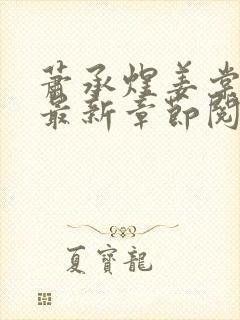 萧承煜姜棠
最新章節閱
夏寶龍